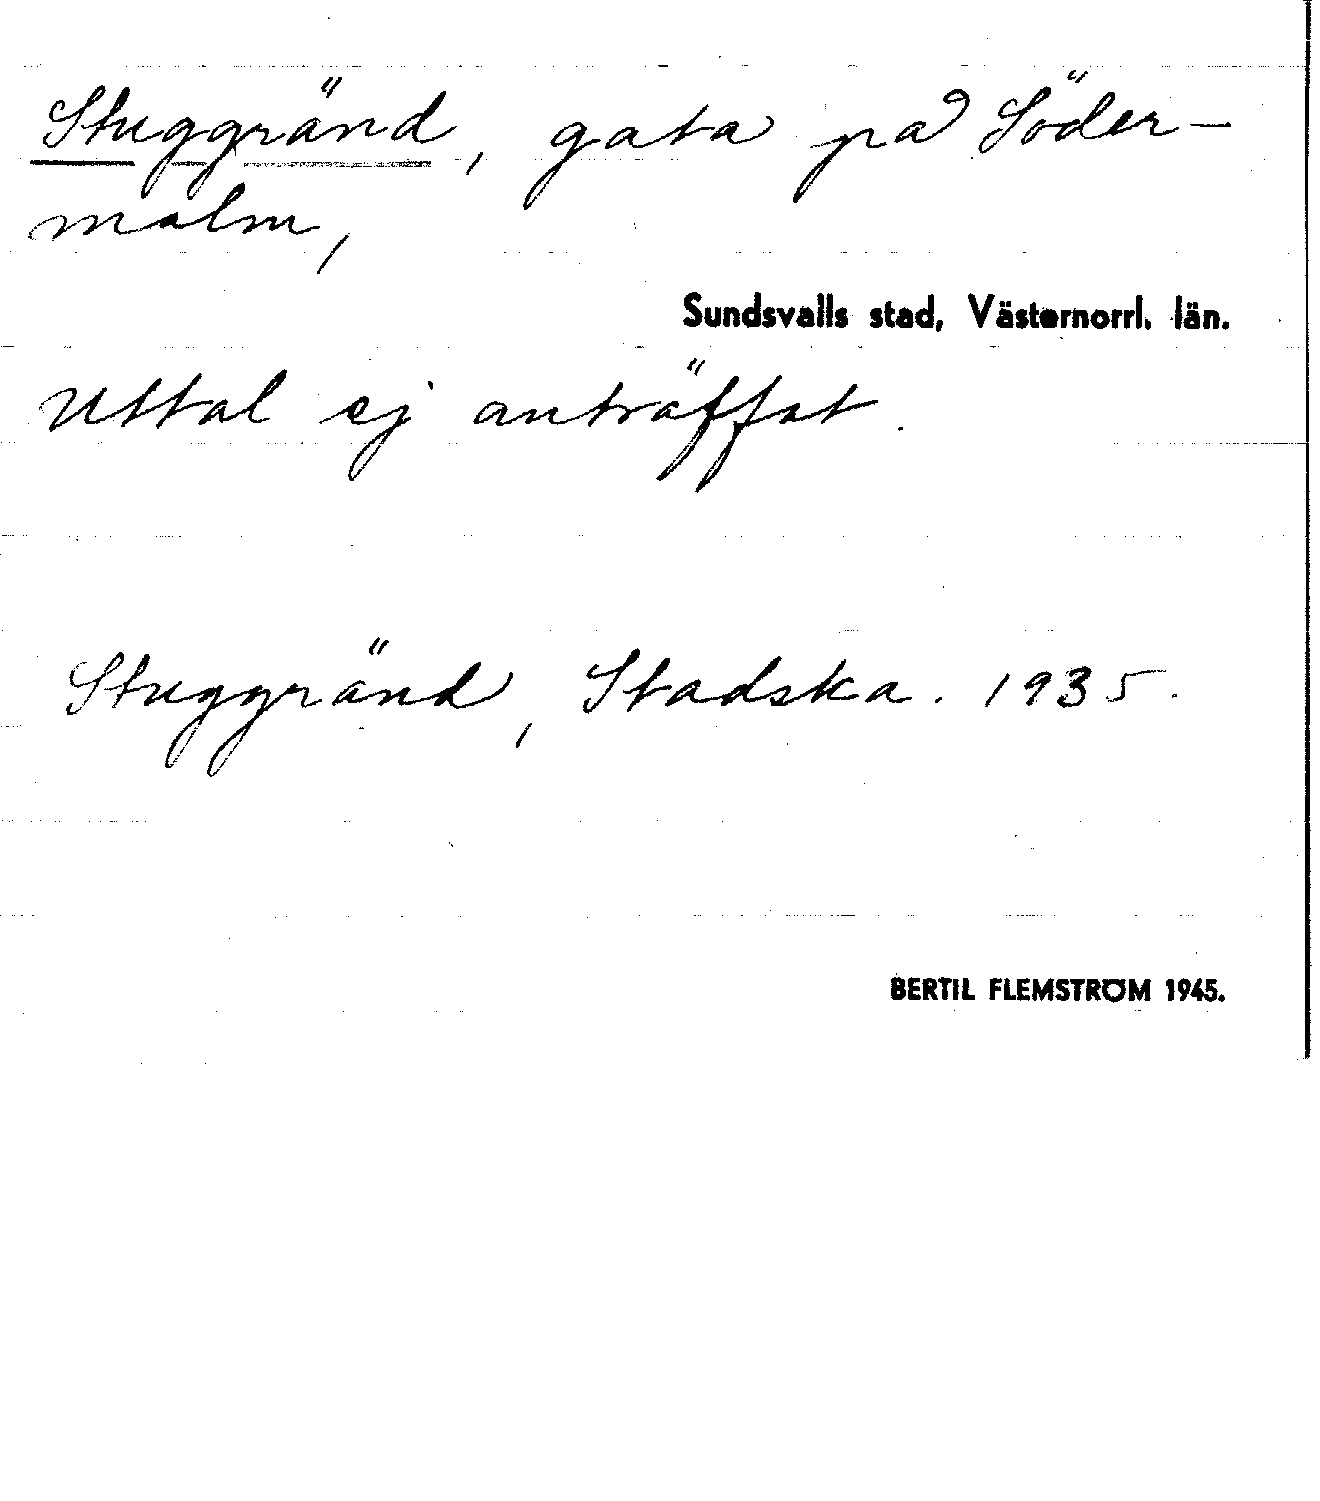 Stuggränd, gata på Söder-
malm,
Sundsvalls stad, Västernorrl. län.
Uttal ej anträffat.
Stuggränd, Stadska. 1935.
BERTIL FLEMSTRÖM 1945.